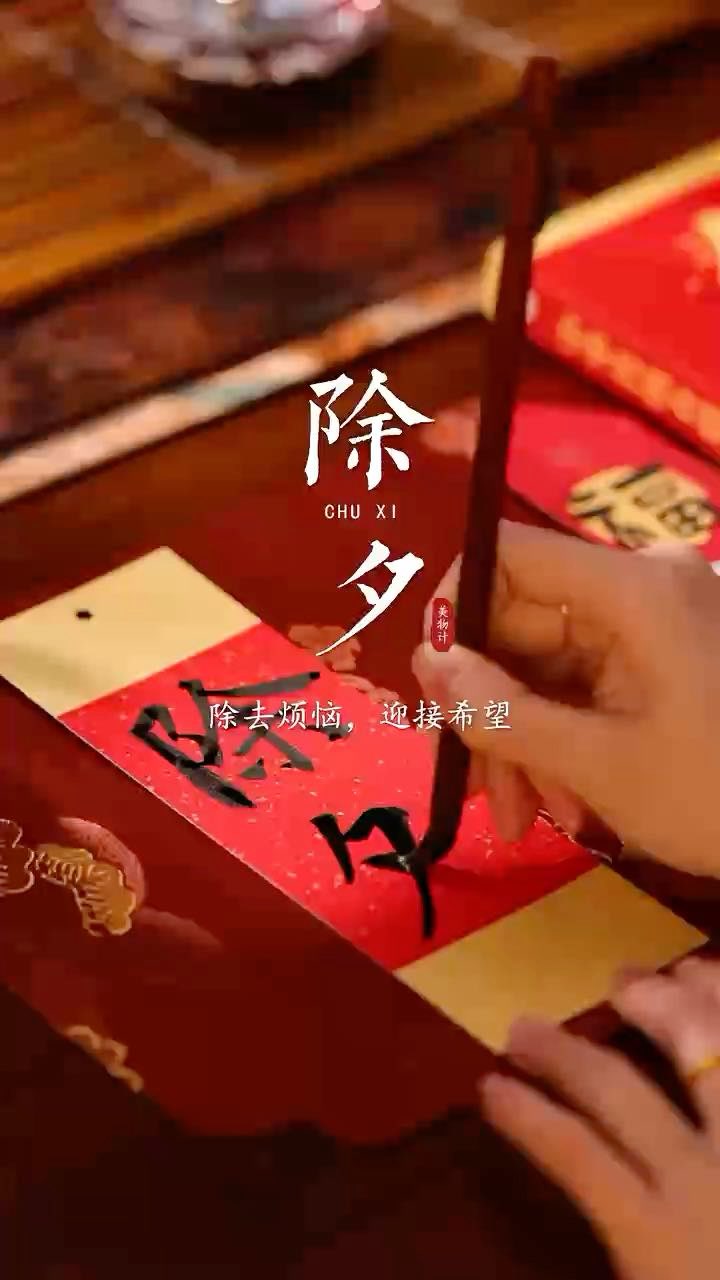 除
CHU XI
夕
美物计
除去烦恼，迎接希望
除
夕
福